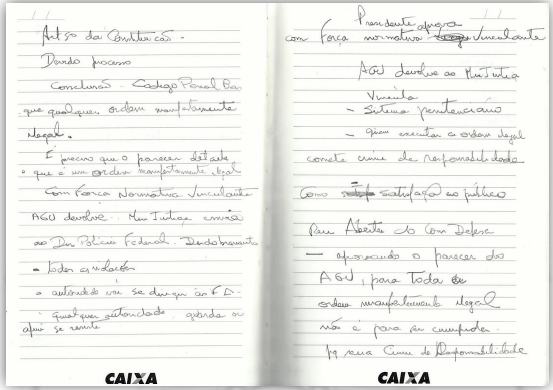 Artigo da Constituição -
Devido processo
Conclusão - Código Penal Bra
que qualquer ordem manifestamente
ilegal.
É preciso que o parecer detalhe
o que é uma ordem manifestamente ilegal
Com Força Normativa Vinculante
AGU devolve Min Justiça
ao Polícia Federal.
autoridade vai se
qualquer autoridade
Presidente aprova
com Força normativa vinculante
AGU devolve ao Min Justiça
Vincula
- Sistema penitenciário
- quem executar a ordem ilegal
comete crime de responsabilidade
Como satisfação ao público
- aprovando o parecer do
AGU, para Toda
ordem manifestamente ilegal
não é para ser cumprida.
pq seria Crime de Responsabilidade
CAIXA
CAIXA